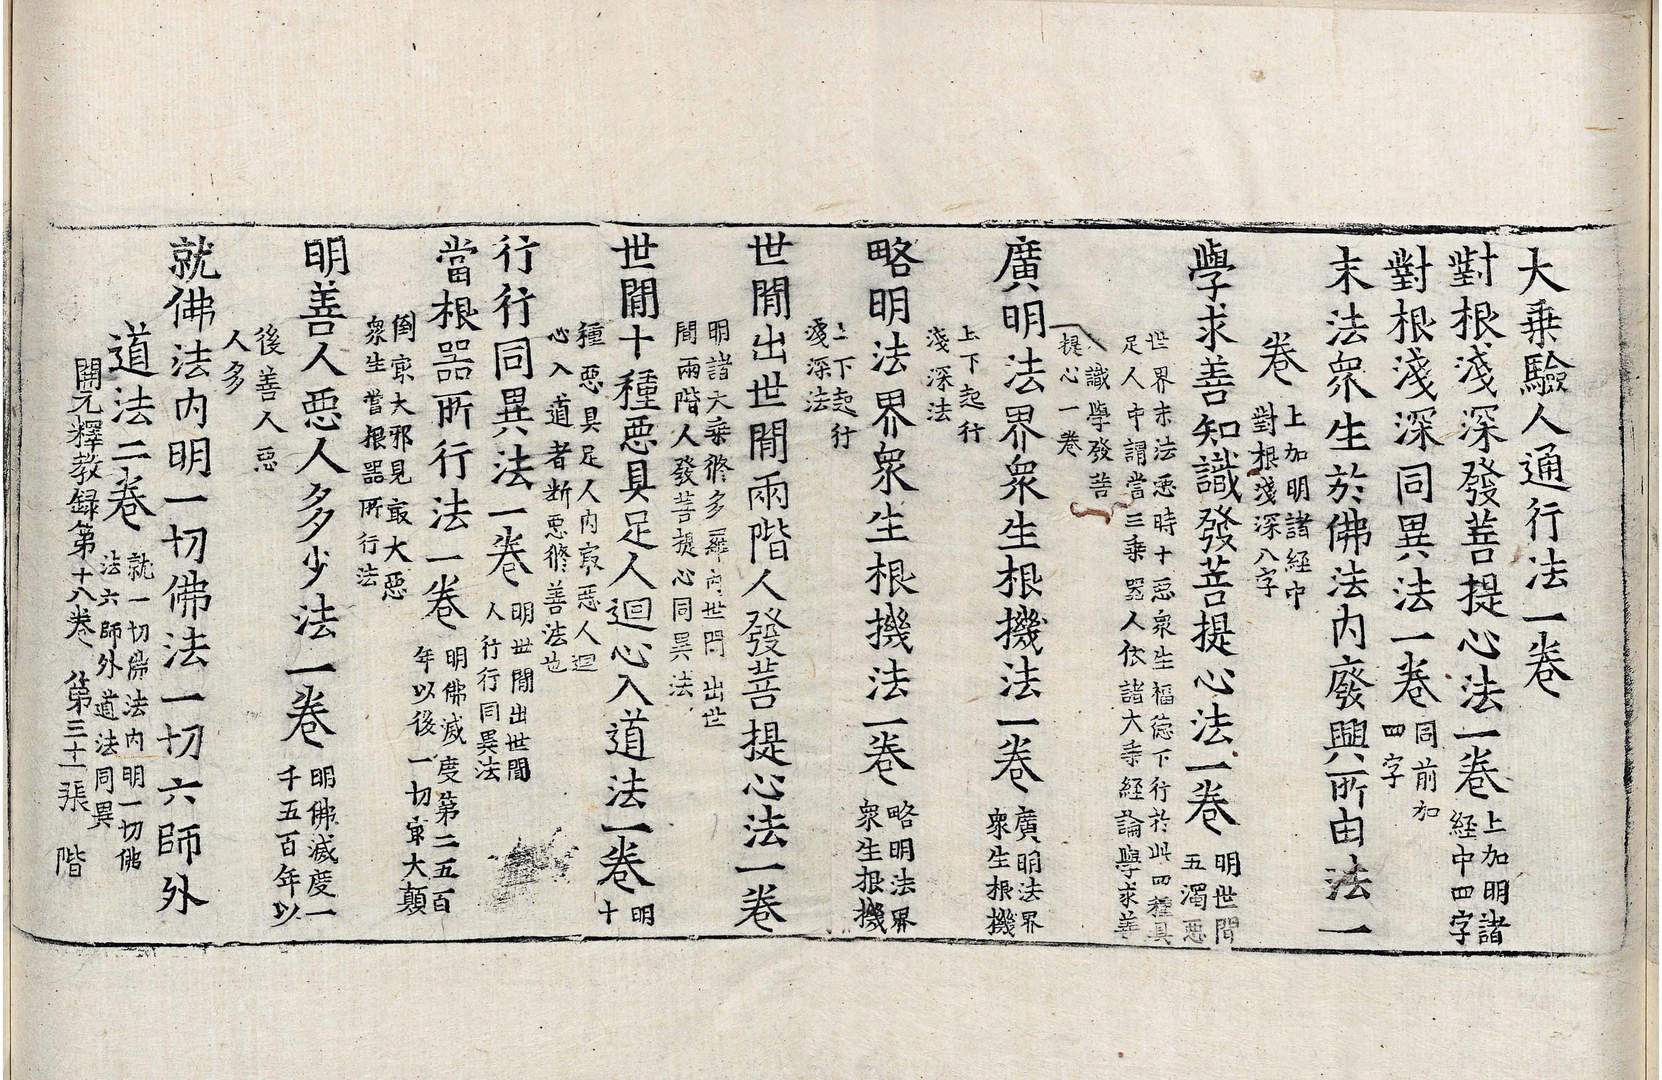 大乗驗人通行法一卷
對根淺深發菩提心法一卷上加明諸經中四字
對根淺深同異法一卷同前加四字
末法衆生於佛法內廢興所由法一
卷上加明諸經中對根淺深八字
學求善知識發菩提心法一卷明世間五濁惡
世界末法惡時十惡衆生福德下行於此四種具
足人中謂當三乘器人依諸大乘經論學求善
知識學發菩
提心一卷
廣明法界衆生根機法一卷廣明法界衆生根機
上下起行淺深法
略明法界衆生根機法一卷略明法界衆生根機
上下起行淺深法
世間出世間兩階人發菩提心法一卷
明諸大乘修多羅內世間出世
間兩階人發菩提心同異法
世間十種惡具足人迴心入道法一卷明十
種惡具足人內最惡人迴
心入道者斷惡修善法也
行行同異法一卷明世間出世間人行行同異法
當根器所行法一卷明佛滅度第二五百年以後一切最大顛
倒最大邪見最大惡
衆生當根器所行法
明善人惡人多少法一卷明佛滅度一千五百年以
後善人惡人多
就佛法內明一切佛法一切六師外
道法二卷就一切佛法內明一切佛法六師外道法同異
開元釋教録第十八卷 第三十一張 階